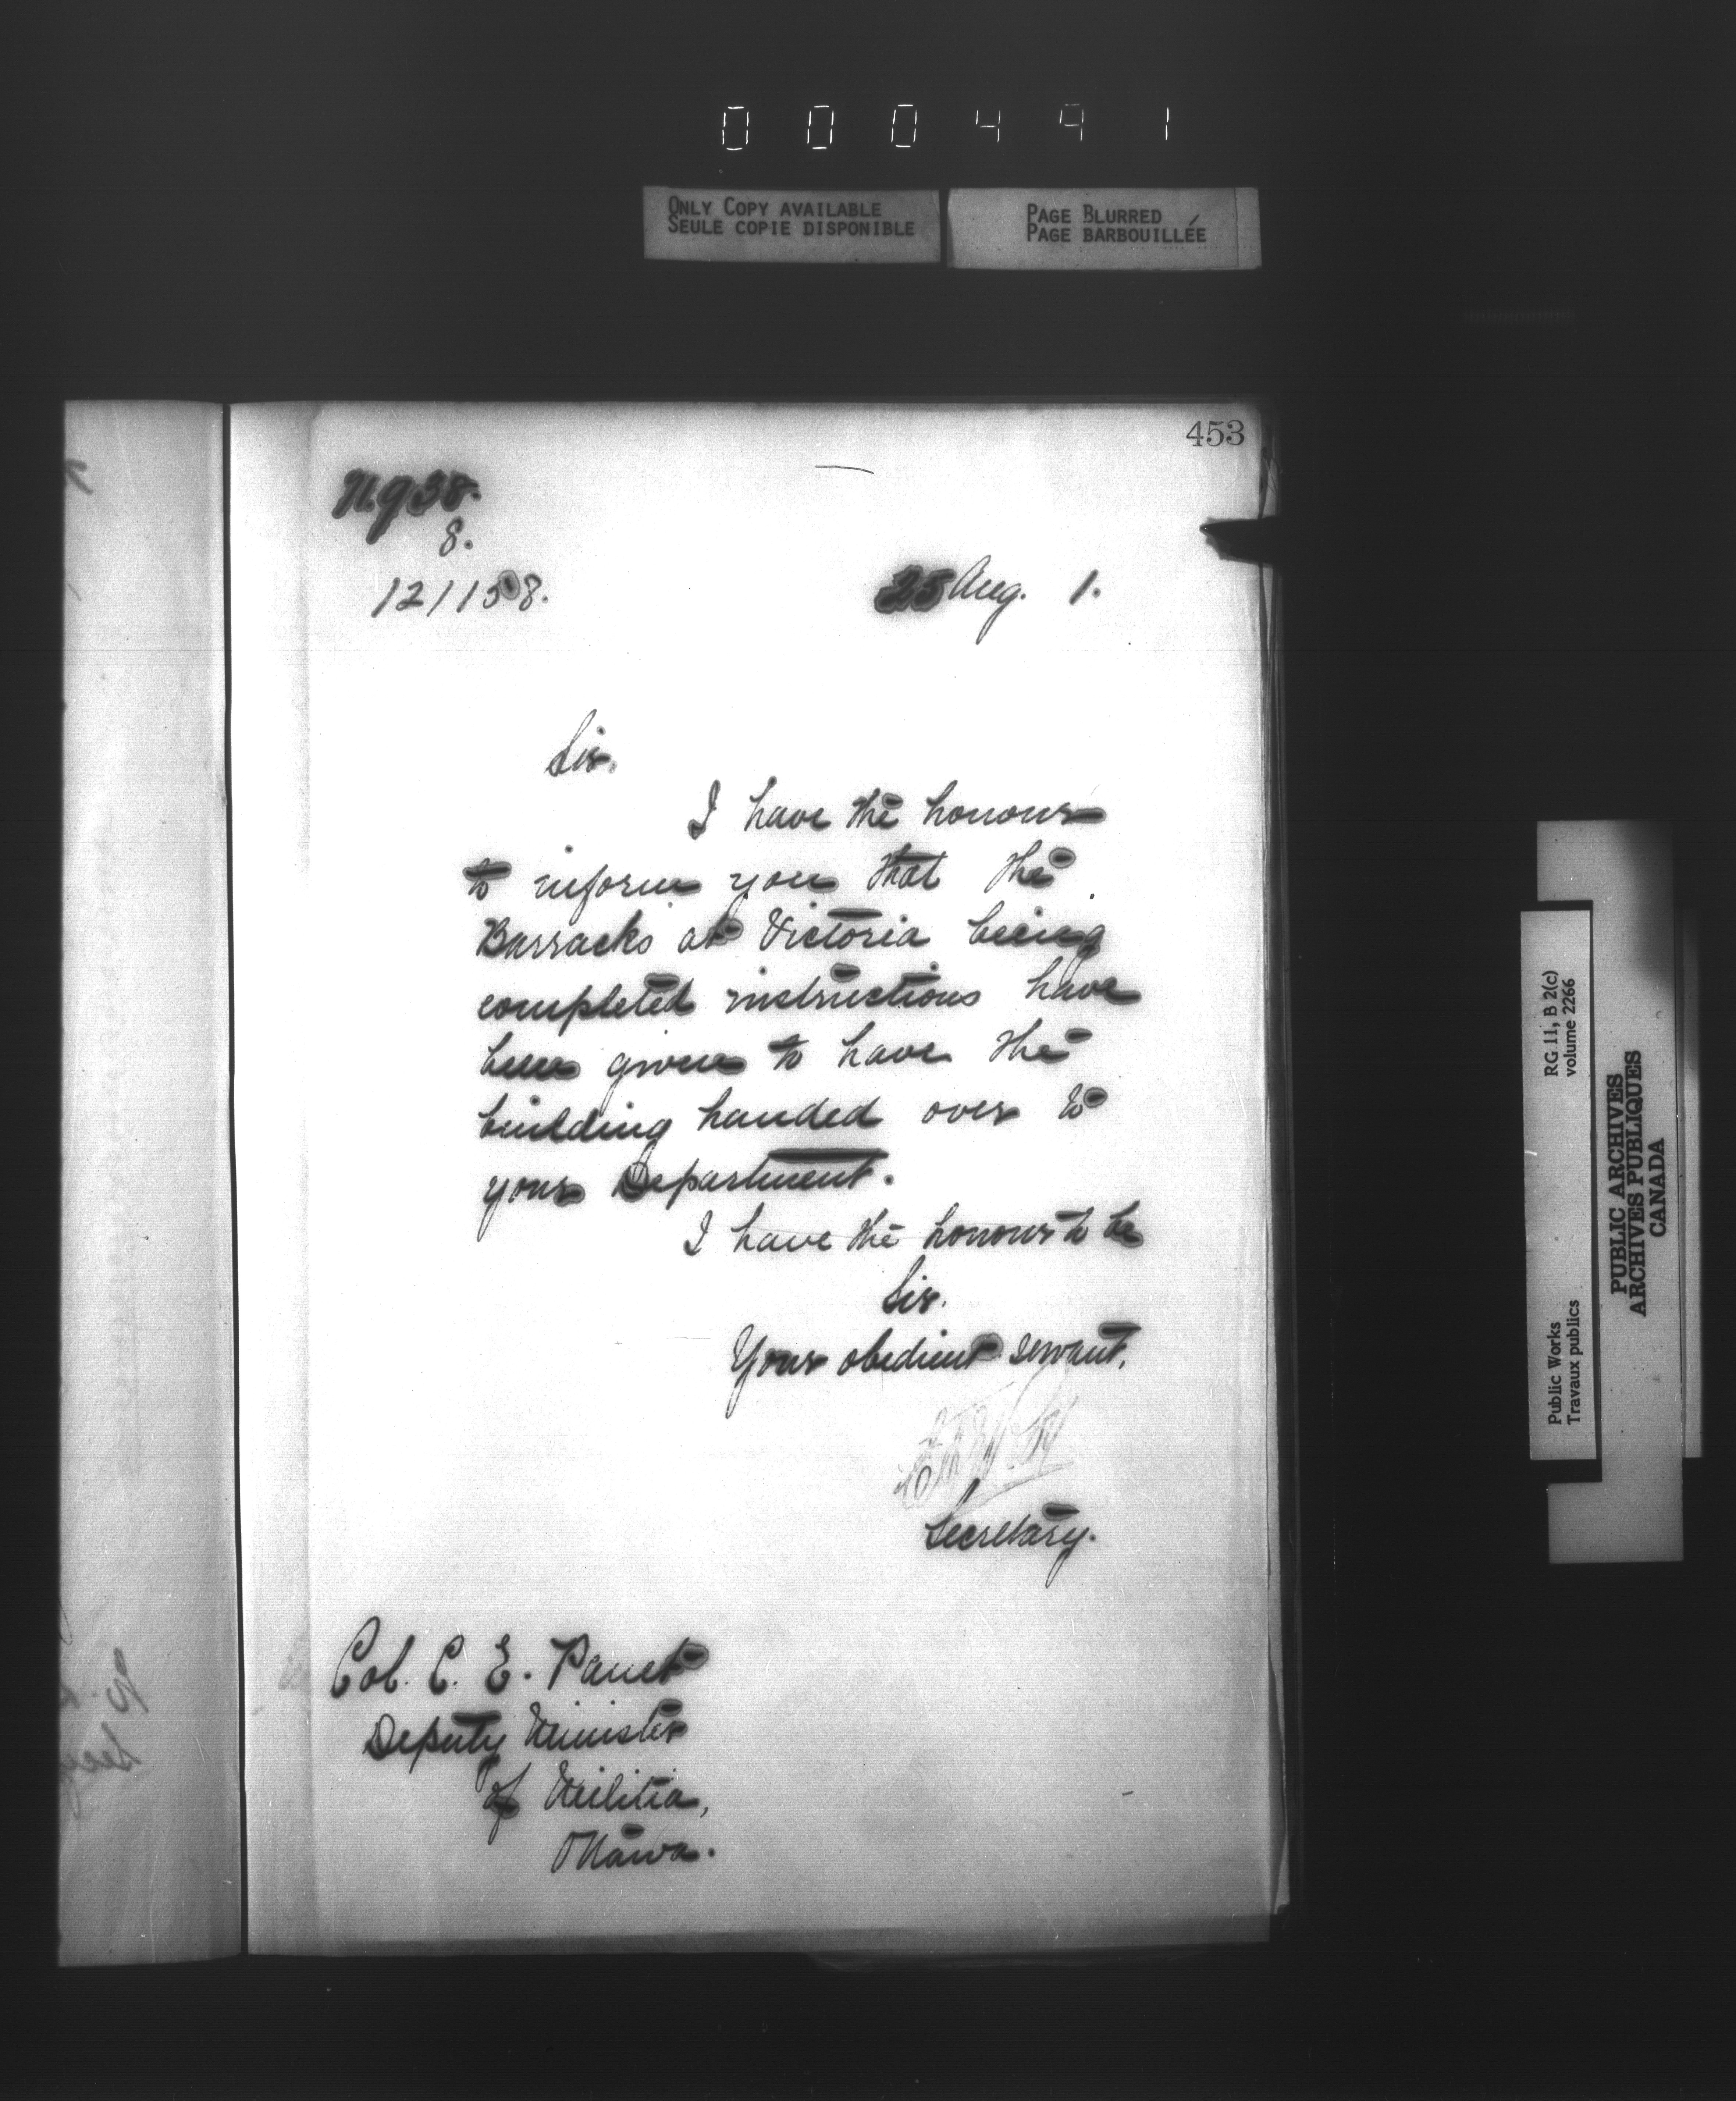 000491
ONLY COPY AVAILABLE
SEULE COPIE DISPONIBLE
PAGE BLURRED
PAGE BARBOUILLÉE
453
8.
121158.
25 Aug. 1.
Sir.
I have the honour
to inform you that the
Barracks at Victoria being
completed instructions have
been given to have the
building handed over to
your Department.
I have the honour to be
Sir.
Your obedient servant,
Secretary.
Col. C. E. Panet
Deputy Minister
of Militia,
Ottawa.
RG 11, B 2(c)
volume 2266
Public Works
Travaux publics
PUBLIC ARCHIVES
ARCHIVES PUBLIQUES
CANADA